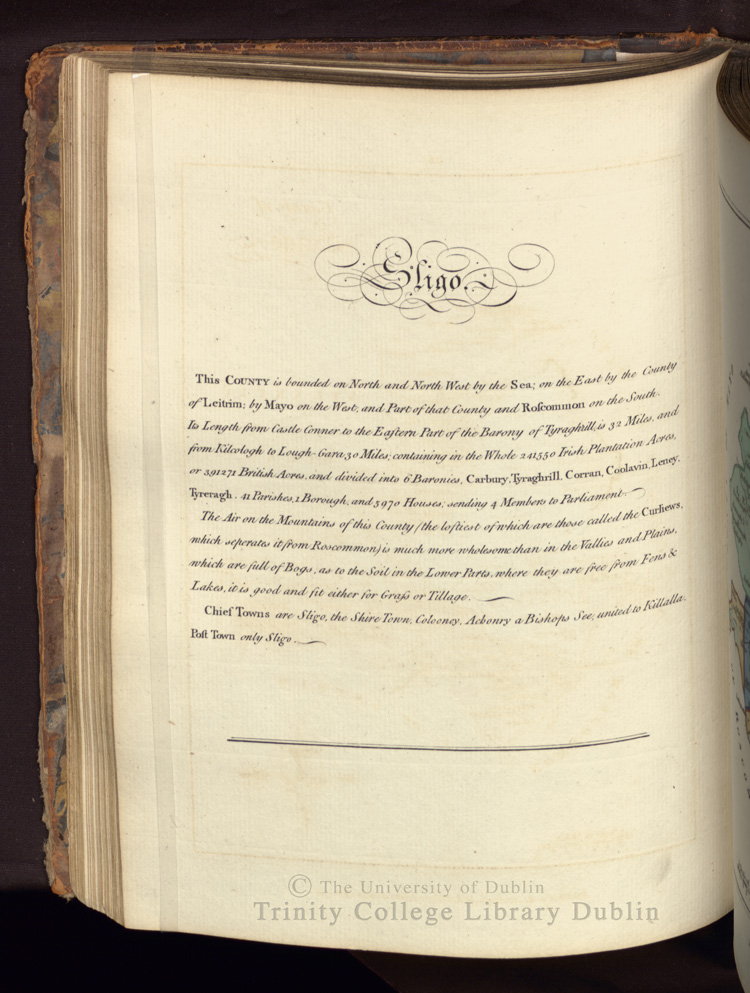 Sligo.
This COUNTY is bounded on North and North West by the Sea; on the East by the County
of Leitrim; by Mayo on the West, and Part of that County and Roſcommon on the South.
Its Length from Castle Conner to the Eaſtern Part of the Barony of Tyraghrill, is 32 Miles, and
from Kilcologh to Lough-Gara 30 Miles; containing in the Whole 241550 Irish Plantation Acres,
or 391271 British Acres, and divided into 6 Baronies, Carbury, Tyraghrill, Corran, Coolavin, Leney,
Tyreragh. 41 Parishes, 1 Borough, and 5970 Houses; sending 4 Members to Parliament.
The Air on the Mountains of this County (the loftiest of which are those called the Curliews,
which seperates it from Roscommon) is much more wholesome than in the Vallies and Plains,
which are full of Bogs, as to the Soil in the Lower Parts, where they are free from Fens &
Lakes, it is good and fit either for Graſs or Tillage.
Chief Towns are Sligo, the Shire Town, Colooney, Aebonry a Bishops See, united to Killalla.
Poſt Town only Sligo.
© The University of Dublin
Trinity College Library Dublin